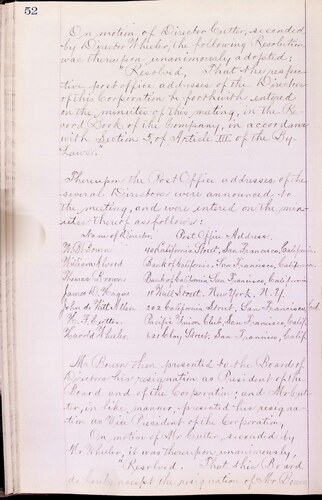 52
On motion of Director Cutter, seconded
by Director Wheeler, the following Resolution
was thereupon unanimously adopted:
"Resolved, That the respec-
tive post office addresses of the Directors
of this Corporation be forthwith entered
on the minutes of this meeting, in the Re-
cord Book of the Company, in accordance
with Section 5, of Article III of the By-
Laws."
Thereupon the Post Office addresses of the
several Directors were announced to
the meeting, and were entered on the min-
utes thereof as follows:
Name of Director. Post Office Address.
W. B. California Street, San Francisco, California
William Alvord Bank of California, San Francisco, California
Thomas Brown Bank of California San Francisco, California
James B. Haggin 11 Wall Street, New York, N. Y.
John de Witt Allen 202 California Street, San Francisco, Cal
Cutter Pacific Union Club, San Francisco, Calif.
Harold Wheeler Clay Street, San Francisco, Calif.
Mr. then presented to the Board of
Directors his resignation as President of the
Board and of the Corporation; and Mr. Cut-
ter, in like manner, presented his resigna-
tion as Vice President of the Corporation,
On motion of Mr. Cutter, seconded by
Mr. Wheeler, it was thereupon unanimously,
"Resolved. That this Board
do hereby accept the resignation of Mr.